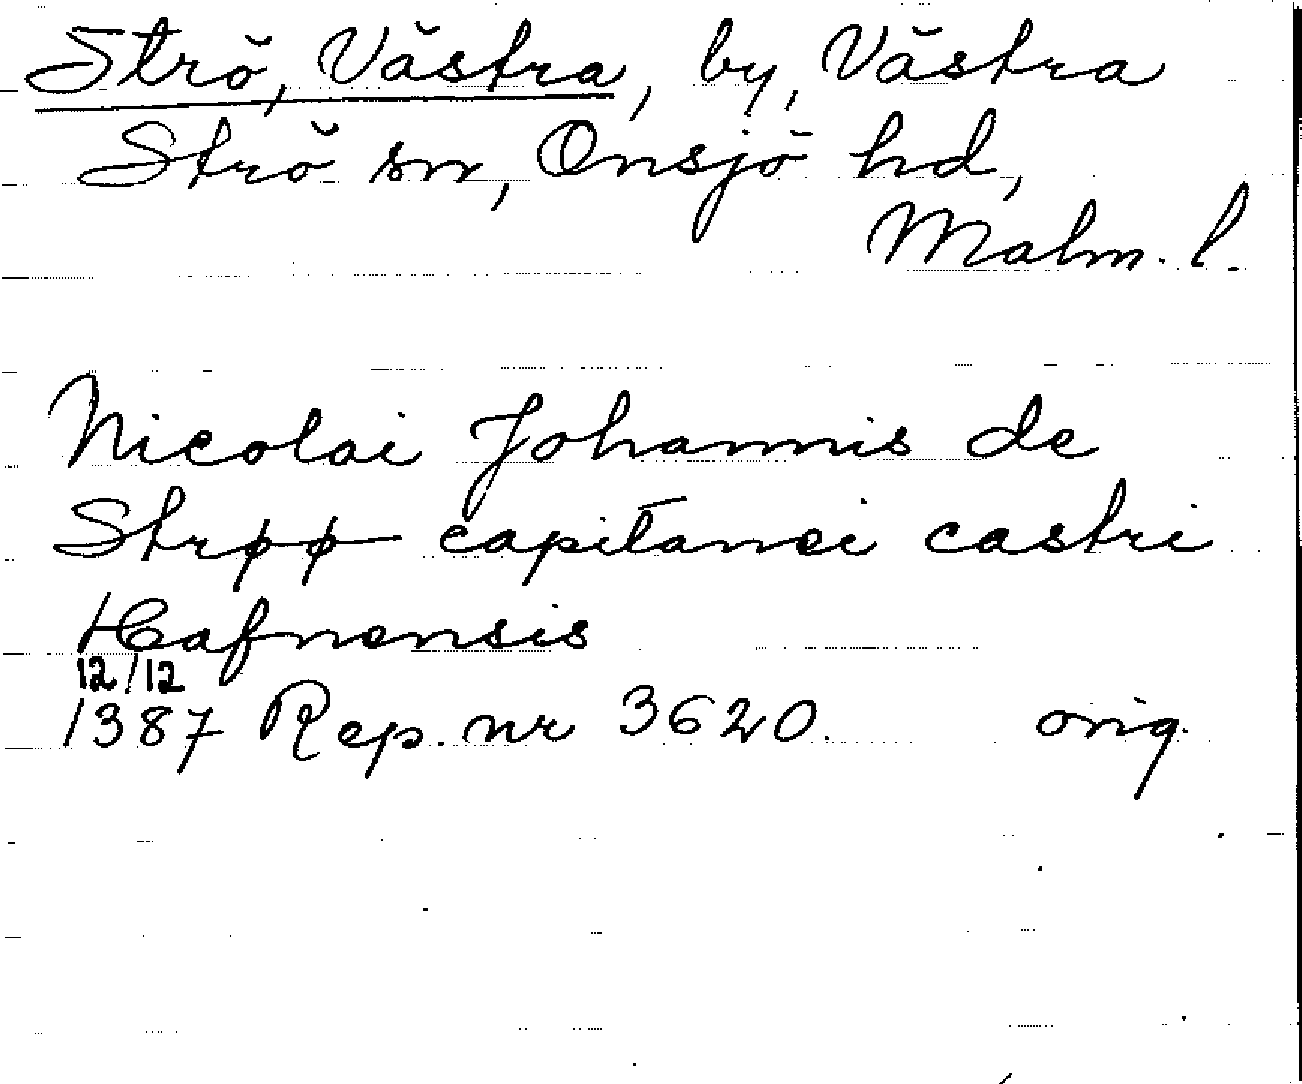 Strö, Västra, by, Västra
Strö sn, Onsjö hd,
Malm. l.
Nicolai Johannis de
Strøø capitanei castri
Hafnensis
12/12
1387 Rep. nr 3620. orig.